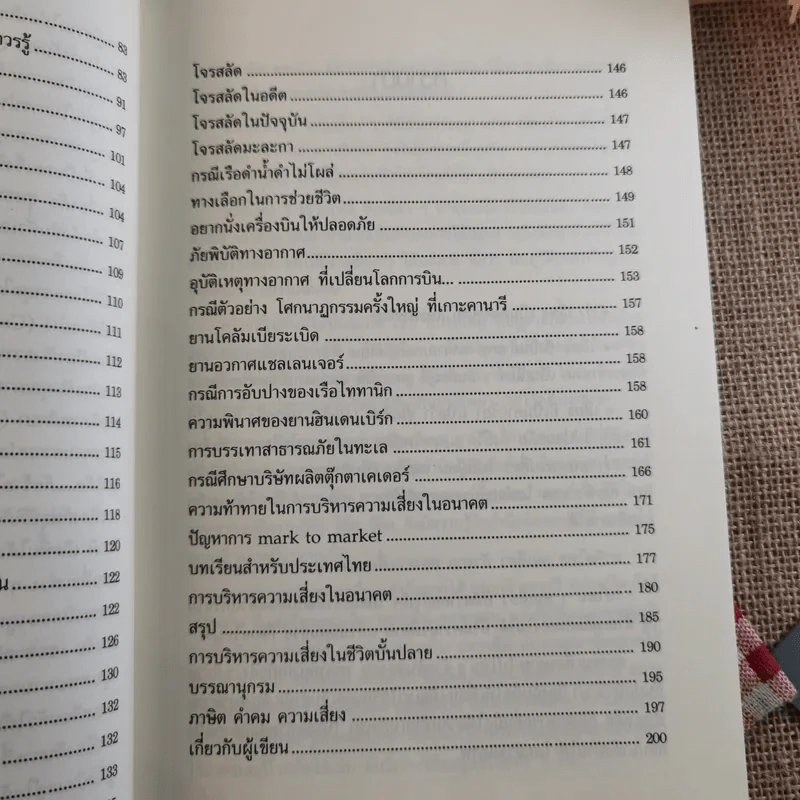 83
ควรรู้ 83
91
97
101
104
104
107
109
110
111
112
113
114
115
116
118
120
122
122
126
130
132
132
133
โจรสลัด 146
โจรสลัดในอดีต 146
โจรสลัดในปัจจุบัน 147
โจรสลัดมะละกา 147
กรณีเรือดำน้ำดำไม่โผล่ 148
ทางเลือกในการช่วยชีวิต 149
อยากนั่งเครื่องบินให้ปลอดภัย 151
ภัยพิบัติทางอากาศ 152
อุบัติเหตุทางอากาศ ที่เปลี่ยนโลกการบิน... 153
กรณีตัวอย่าง โศกนาฏกรรมครั้งใหญ่ ที่เกาะคานารี 157
ยานโคลัมเบียระเบิด 158
ยานอวกาศแชลเลนเจอร์ 158
กรณีการอับปางของเรือไททานิก 158
ความพินาศของยานฮินเดนเบิร์ก 160
การบรรเทาสาธารณภัยในทะเล 161
กรณีศึกษาบริษัทผลิตตุ๊กตาเคเดอร์ 166
ความท้าทายในการบริหารความเสี่ยงในอนาคต 171
ปัญหาการ mark to market 175
บทเรียนสำหรับประเทศไทย 177
การบริหารความเสี่ยงในอนาคต 180
สรุป 185
การบริหารความเสี่ยงในชีวิตบั้นปลาย 190
บรรณานุกรม 195
ภาษิต คำคม ความเสี่ยง 197
เกี่ยวกับผู้เขียน 200